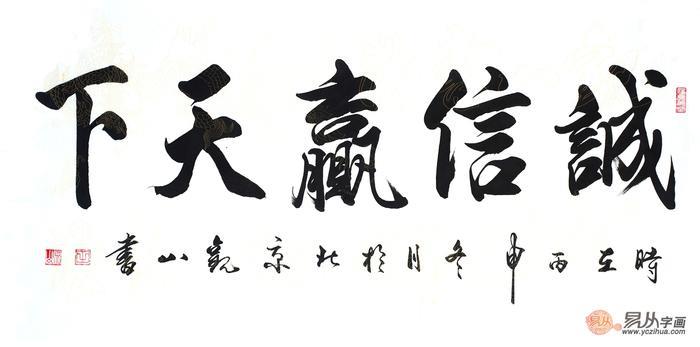 誠信贏天下
時在丙申冬月於北京觀山書
易从
易从字画
www.yczihua.com